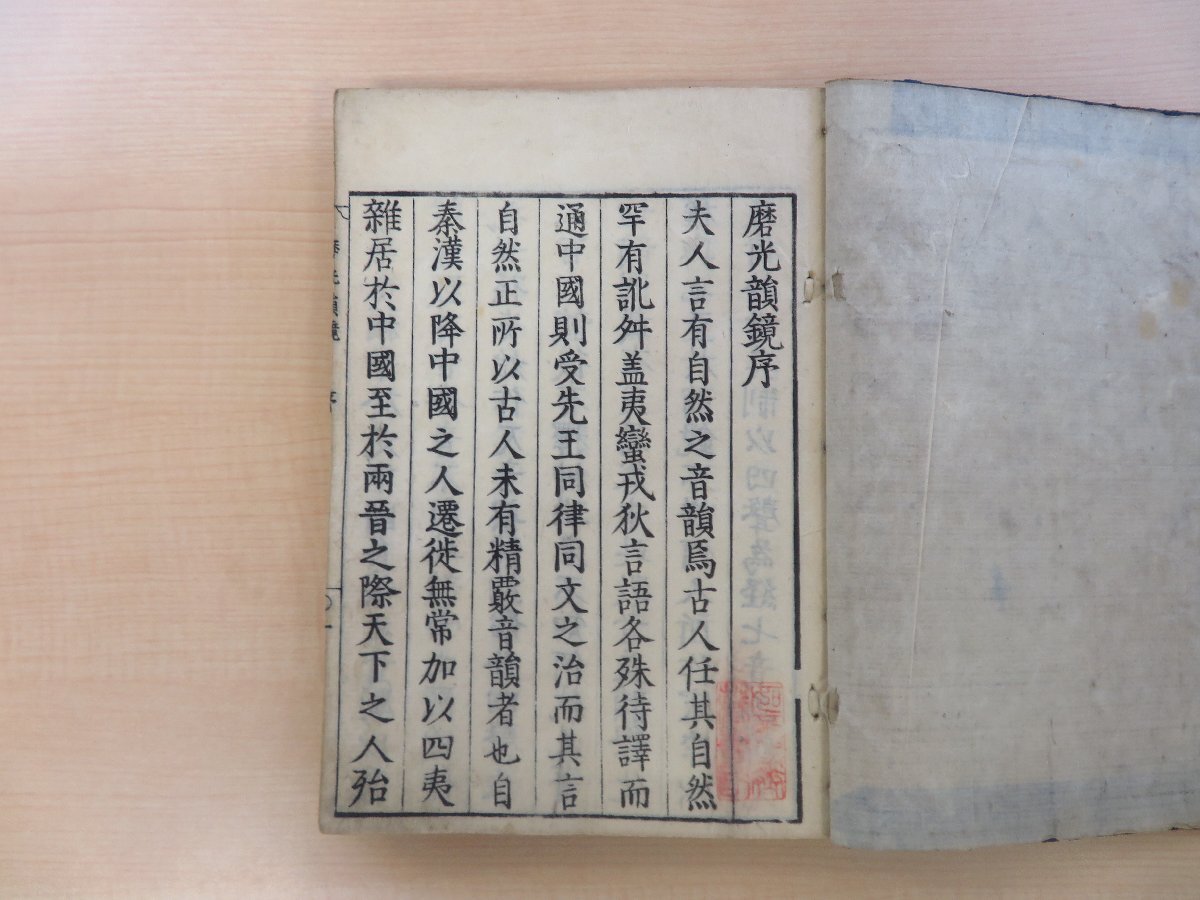 磨光韻鏡序
夫人言有自然之音韻焉古人任其自然
罕有訛舛盖夷蠻戎狄言語各殊待譯而
通中國則受先王同律同文之治而其言
自然正所以古人未有精覈音韻者也自
秦漢以降中國之人遷徙無常加以四夷
雜居於中國至於兩晉之際天下之人殆